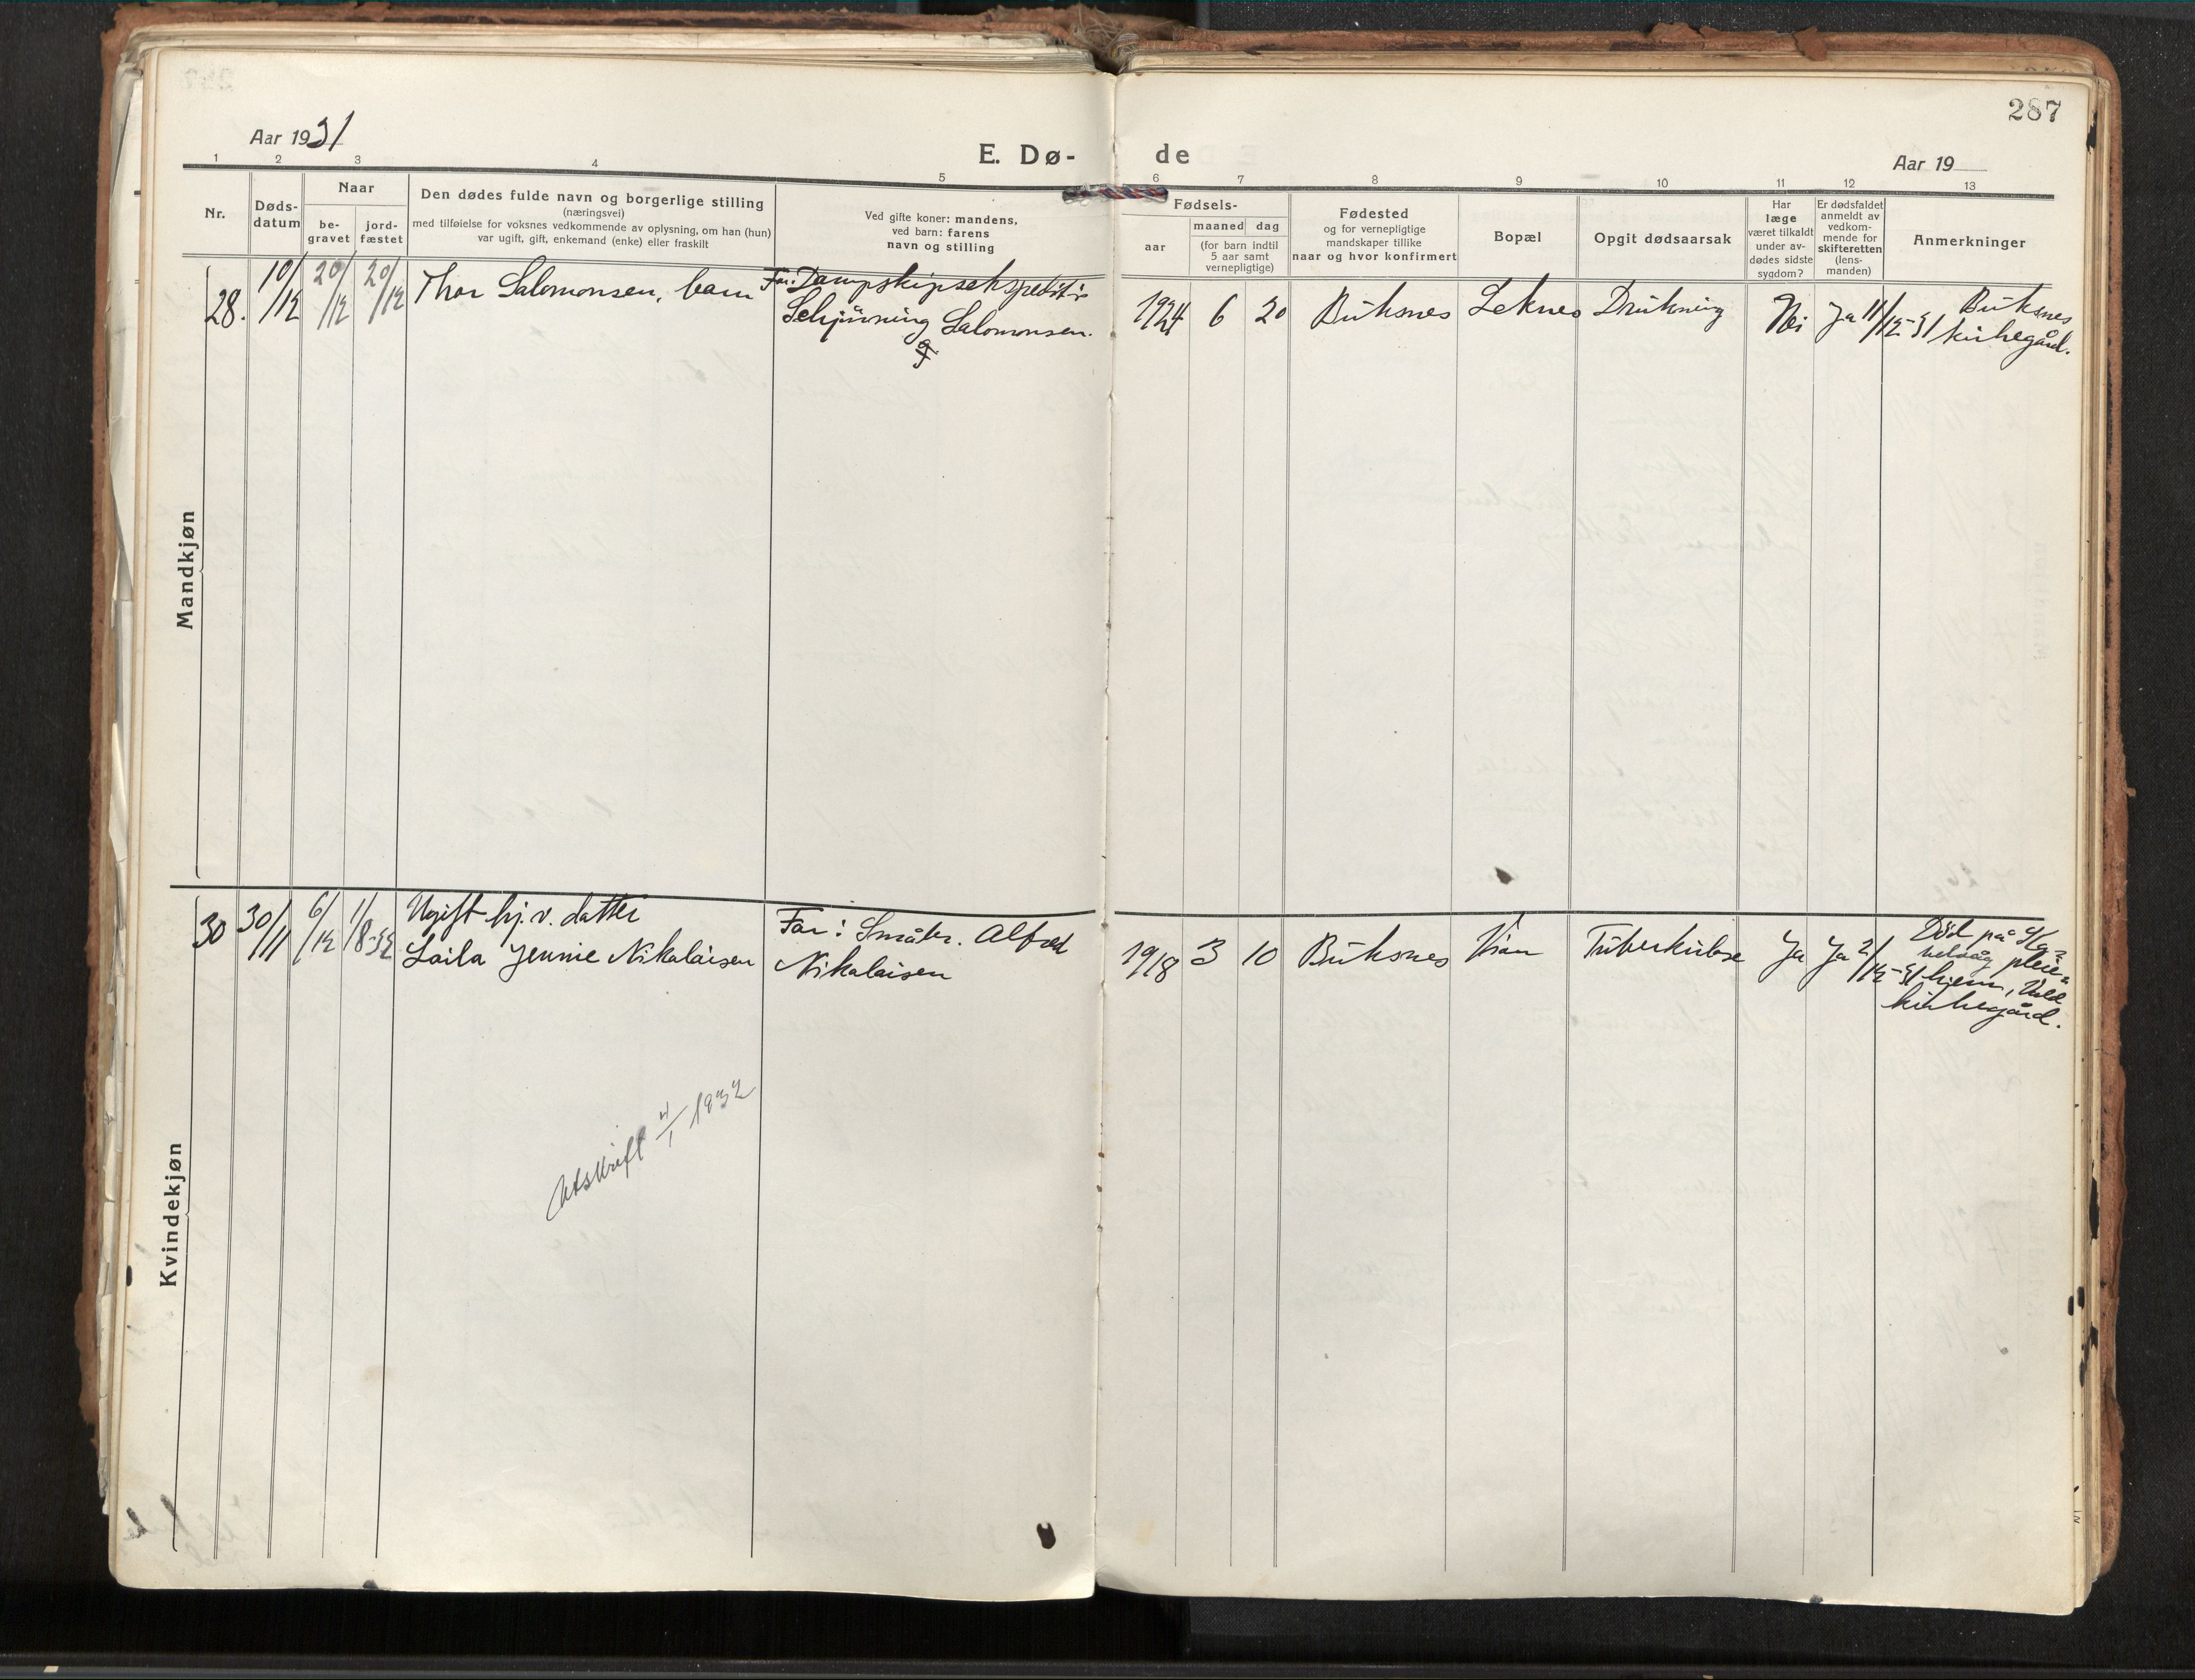 287
Aar 1931
E. Dø-
de
Aar 19
1 2 3 4 5 6 7 8 9 10 11 12 13
Nr.
Døds-
datum
Naar
be-
gravet
jord-
fæstet
Den dødes fulde navn og borgerlige stilling
(næringsvei)
med tilføielse for voksnes vedkommende av oplysning, om han (hun)
var ugift, gift, enkemand (enke) eller fraskilt
Ved gifte koner: mandens,
ved barn: farens
navn og stilling
Fødsels-
aar
maaned dag
(for barn indtil
5 aar samt
vernepligtige)
Fødested
og for vernepligtige
mandskaper tillike
naar og hvor konfirmert
Bopæl
Opgit dødsaarsak
Har
læge
været tilkaldt
under av-
dødes sidste
sygdom?
Er dødsfaldet
anmeldt av
vedkom-
mende for
skifteretten
(lens-
manden)
Anmerkninger
Mandkjøn
28.
10/12
20/12
20/12
Thor Salomonsen, barn
Far: Dampskipsekspeditør
Schjünning Salomonsen.
1924 6 20
Buksnes
Leknes
Drukning
Nei
Ja 11/12-31
Buksnes
kirkegård.
Kvindekjøn
30
30/11
6/12
1/8-32
Ugift hj. v. datter
Laila Jennie Nikolaisen
Far: Småbr. Alfred
Nikolaisen
1918 3 10
Buksnes
Tuberkulose
Ja
Ja 2/12-31
Död på
pleie-
hiem,
kirkegård.
Utskrift 4/1 1932